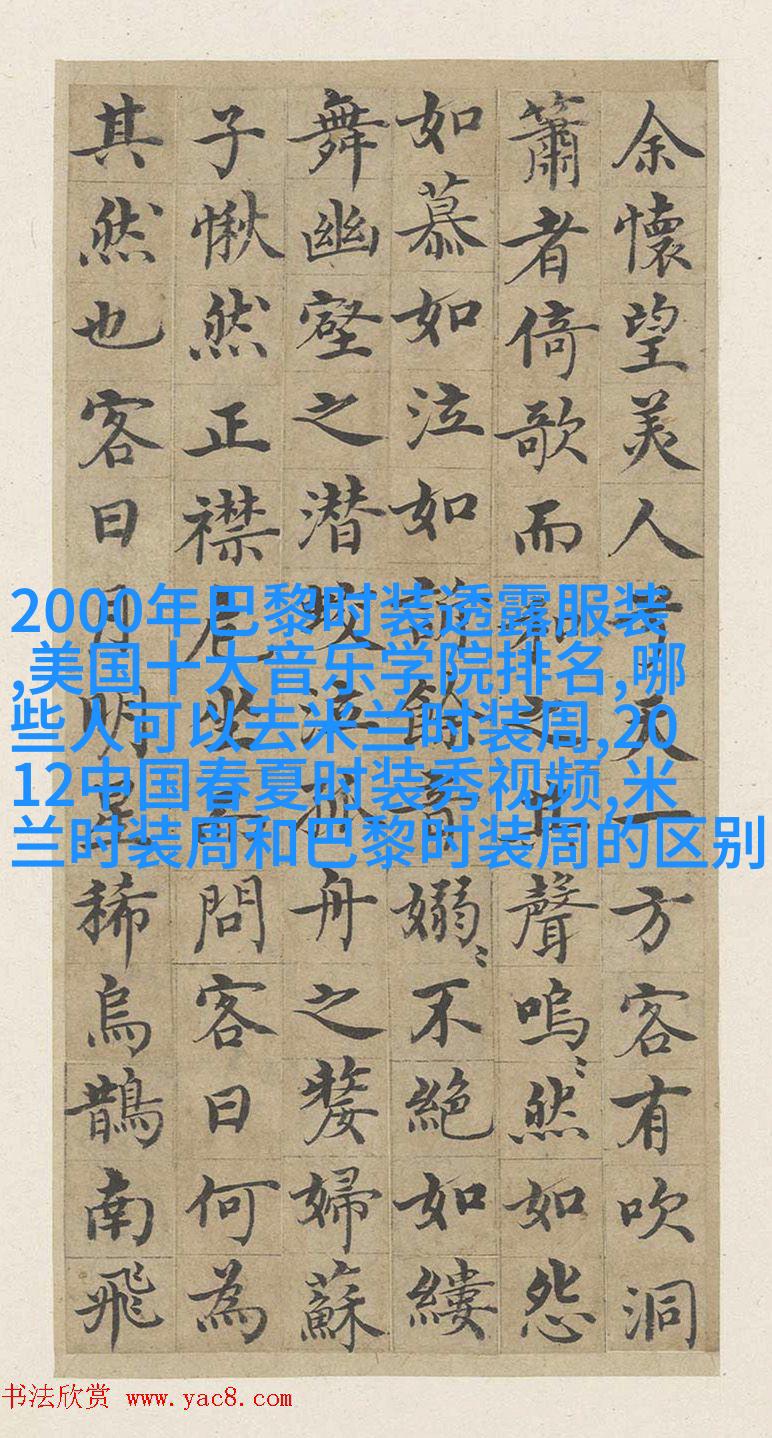 余懷望美人兮天一方客有吹洞
簫者倚歌而和之其聲嗚〻然如怨
如慕如泣如訴餘音嫋〻不絕如縷
舞幽壑之潛蛟泣孤舟之嫠婦蘇
子愀然正襟危坐而問客曰何為
其然也客曰月明星稀烏鵲南飛
2000年巴黎时装透露服装
,美国十大音乐学院排名,哪
些人可以去米兰时装周,20
12中国春夏时装秀视频,米
兰时装周和巴黎时装周的区别
书法欣赏 www.yac8.com